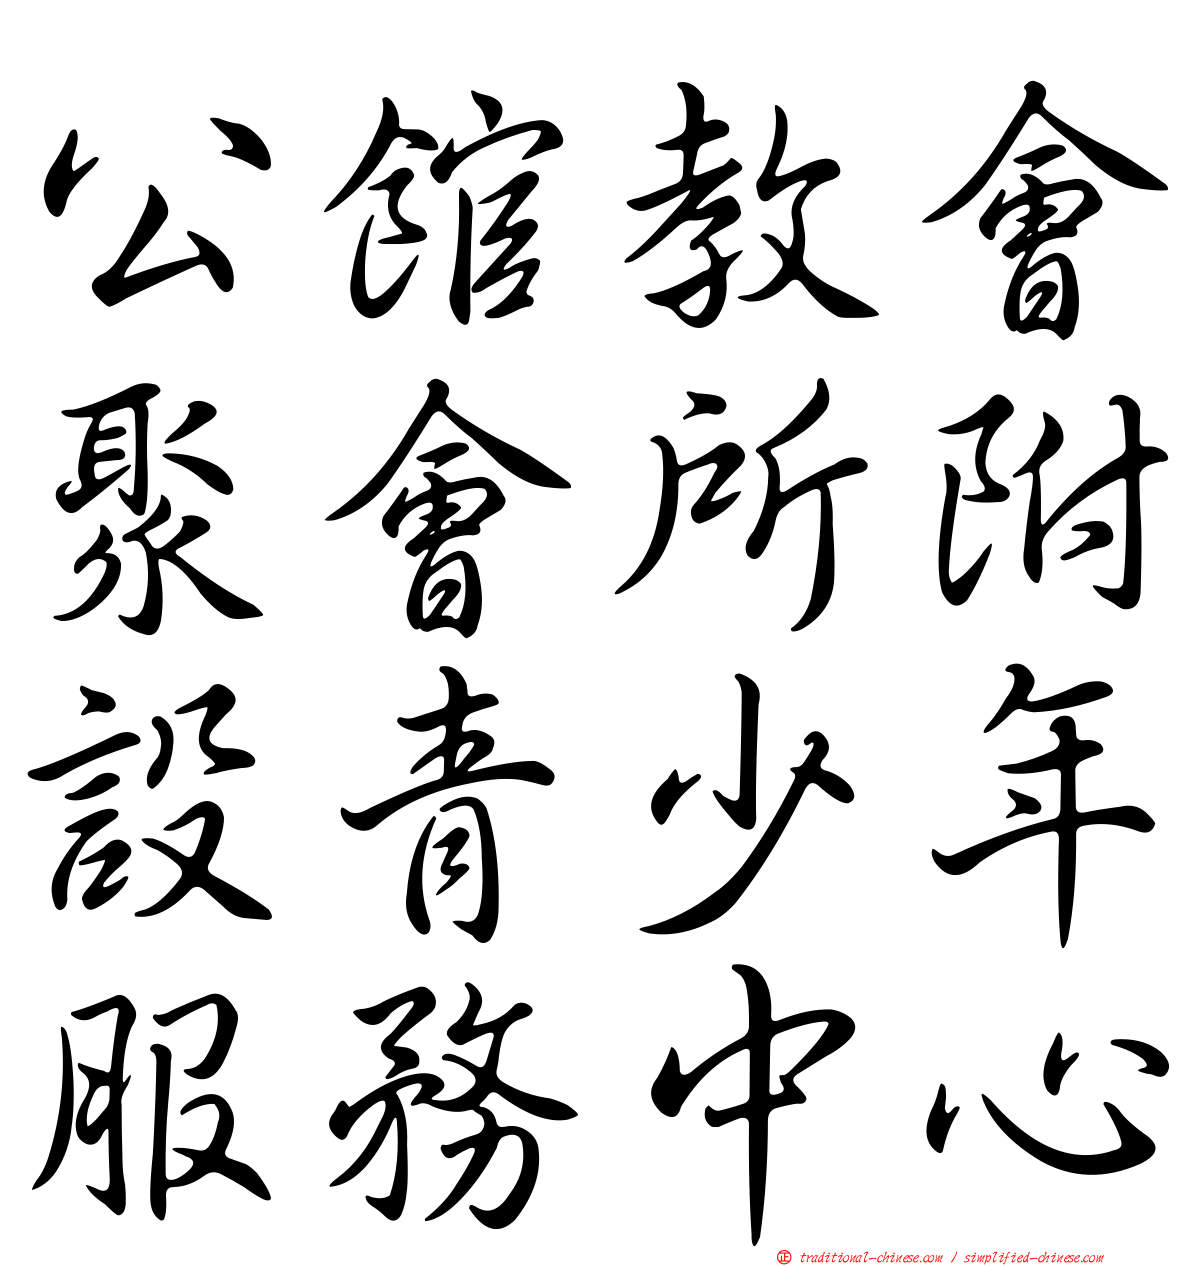 公館教會
聚會所附
設青少年
服務中心
正 traditional-chinese.com / simplified-chinese.com